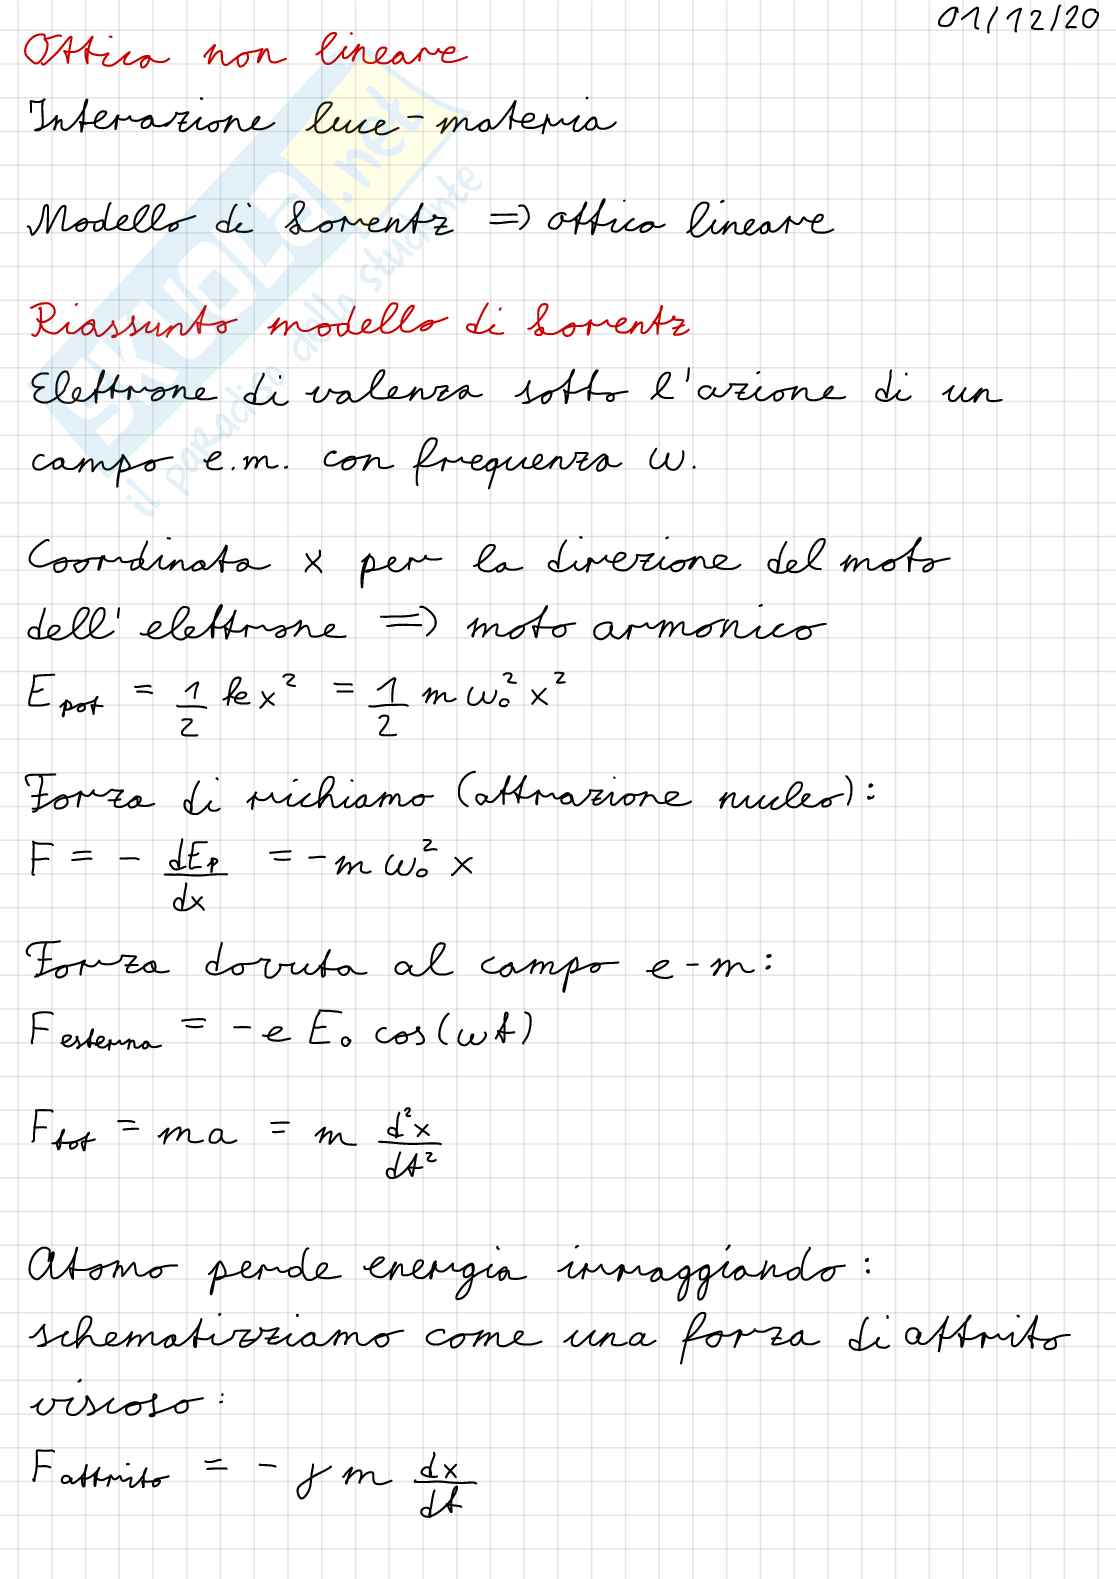 01/12/20
Ottica non lineare
Interazione luce-materia
Modello di Lorentz => ottica lineare
Riassunto modello di Lorentz
Elettrone di valenza sotto l'azione di un
campo e.m. con frequenza ω.
Coordinata x per la direzione del moto
dell'elettrone => moto armonico
E pot = 1/2 k x² = 1/2 m ω₀² x²
Forza di richiamo (attrazione nucleo):
F = - dEp/dx = - m ω₀² x
Forza dovuta al campo e-m:
F esterna = - e E₀ cos(ωt)
F tot = ma = m d²x/dt²
Atomo perde energia irraggiando:
schematizziamo come una forza di attrito
viscoso:
F attrito = - γ m dx/dt
SKUOLA.net
il paradiso dello studente